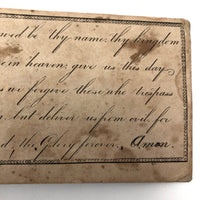 owed be thy name; thy kingdom
e in heaven; give us this day
s we forgive those who trespass
n, but deliver us from evil for
d the Glory forever. Amen.